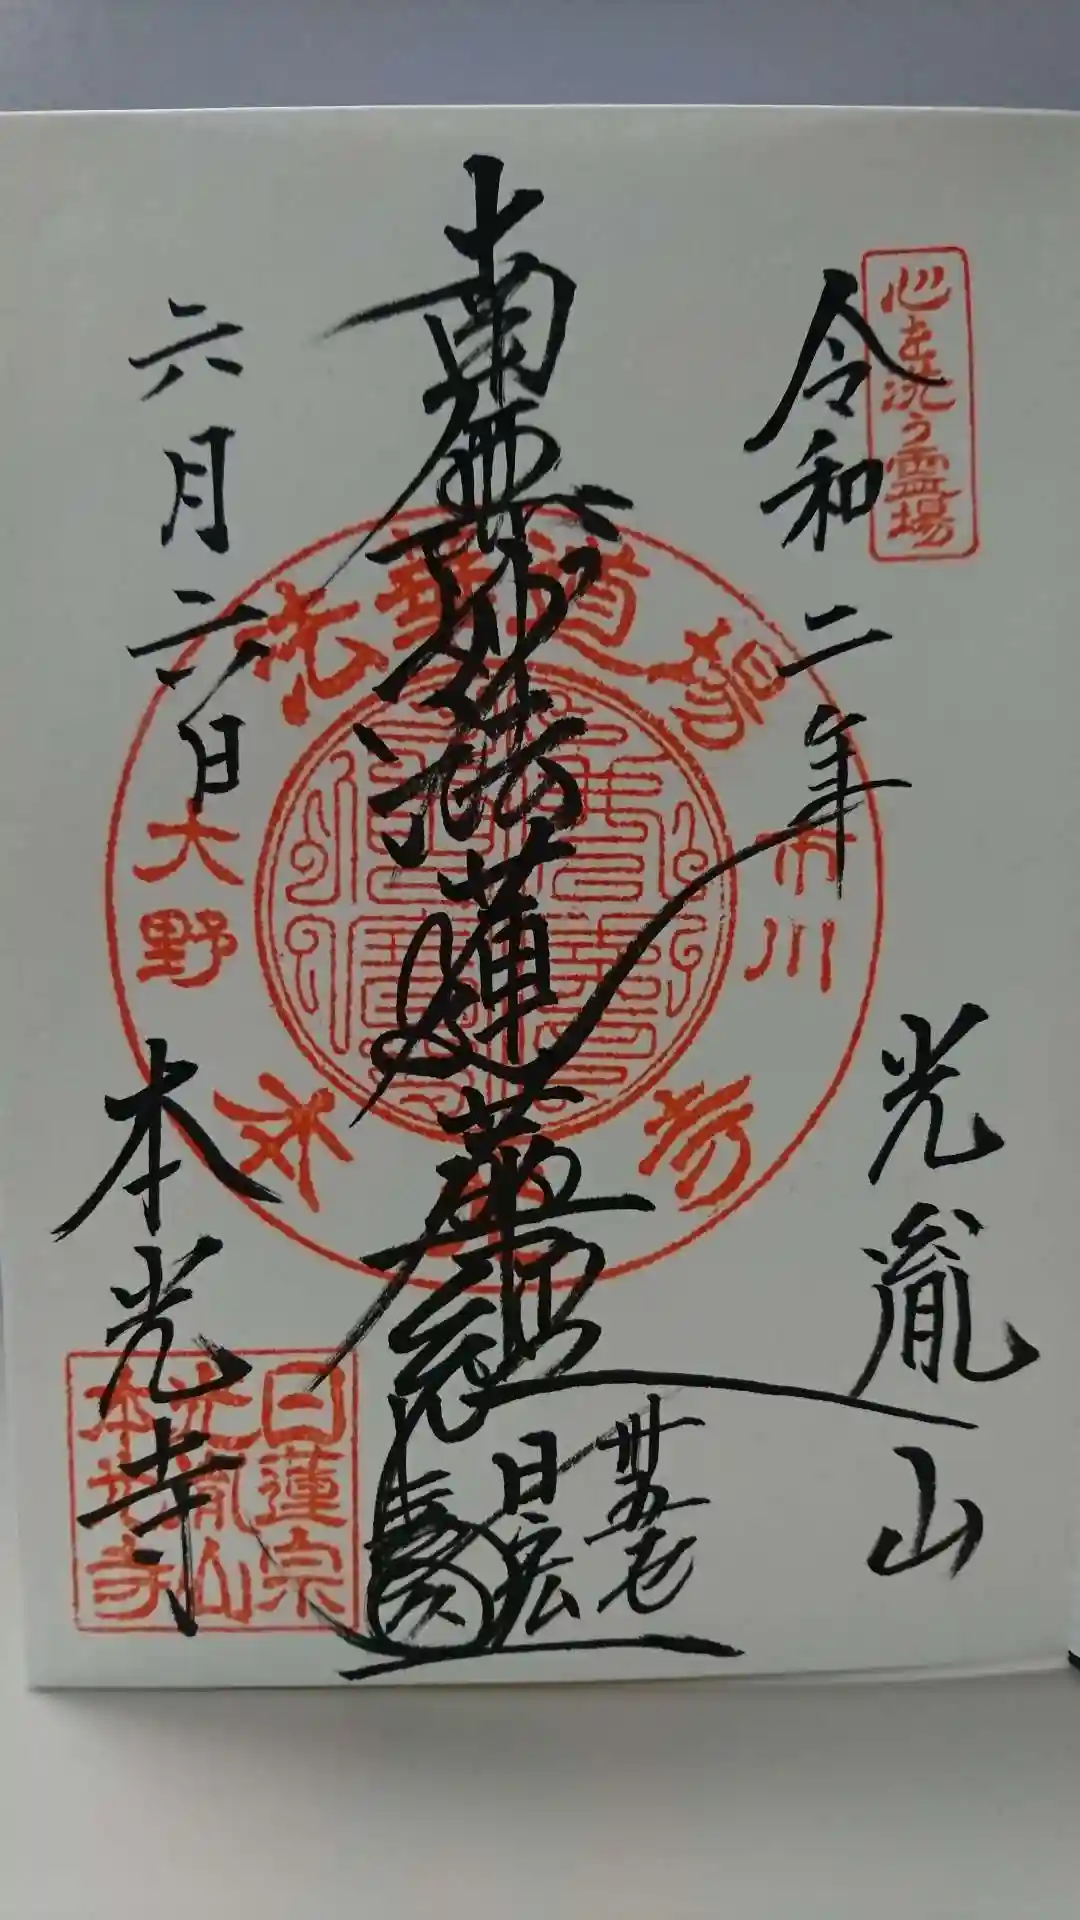 心を洗う霊場
令和二年
光胤山
南無妙法蓮華経
卅五世
日宏
六月六日
本光寺
法華道場
市川
大野
日蓮宗
光胤山
本光寺